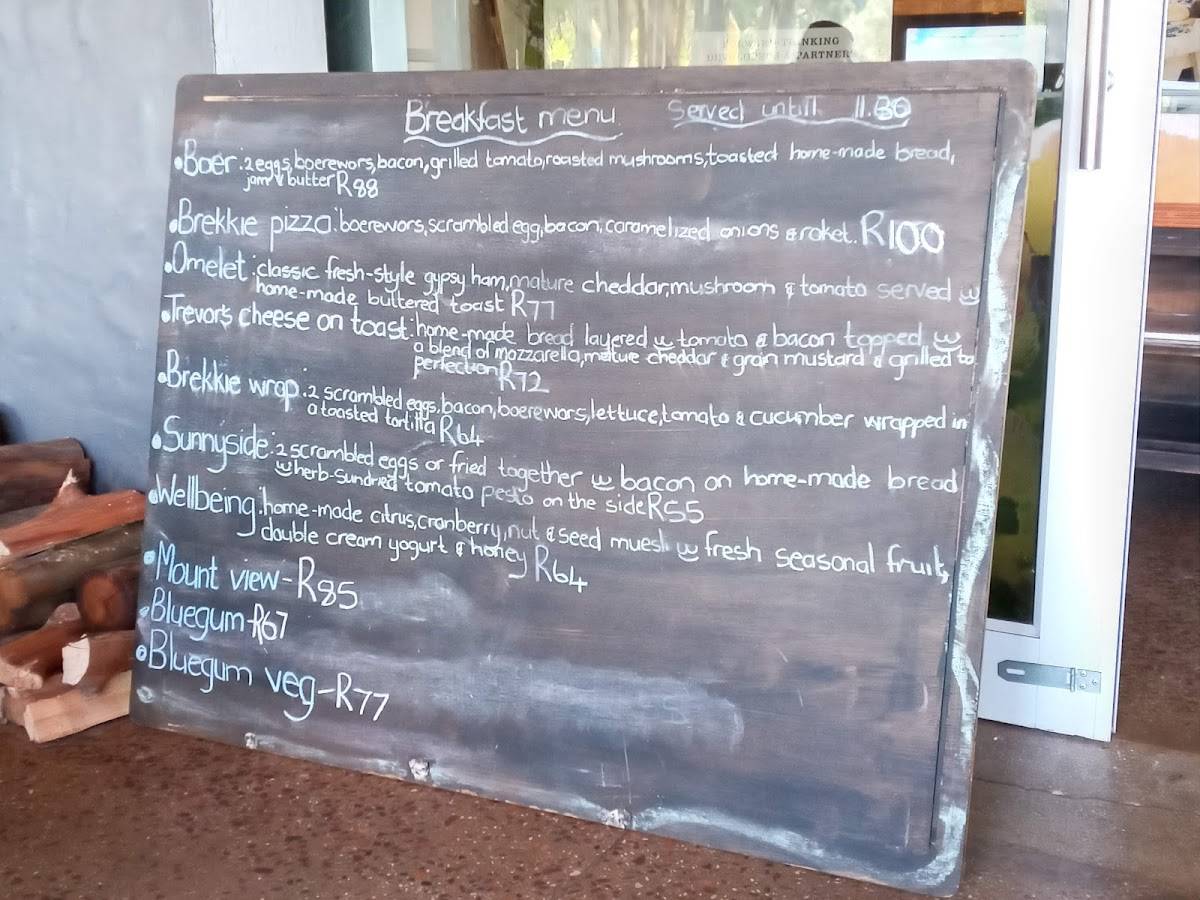 NKING
PARTNER
Breakfast menu Served untill 11.30
Boer: 2 eggs, boerewors, bacon, grilled tomato, roasted mushrooms, toasted home-made bread,
jam & butter R88
Brekkie pizza: boerewors, scrambled egg, bacon, caramelized onions & roket. R100
Omelet: classic fresh-style gypsy ham, mature cheddar, mushroom & tomato served w
home-made buttered toast R77
Trevor's cheese on toast: home-made bread layered w tomato & bacon topped w
a blend of mozzarella, mature cheddar & grain mustard & grilled to
perfection R72
Brekkie wrap: 2 scrambled eggs, bacon, boerewors, lettuce, tomato & cucumber wrapped in
a toasted tortilla R64
Sunnyside: 2 scrambled eggs or fried together w bacon on home-made bread
w herb-sundried tomato pesto on the side R55
Wellbeing: home-made citrus, cranberry, nut & seed muesli w fresh seasonal fruit,
double cream yogurt & honey R64
Mount view - R85
Bluegum - R67
Bluegum veg - R77